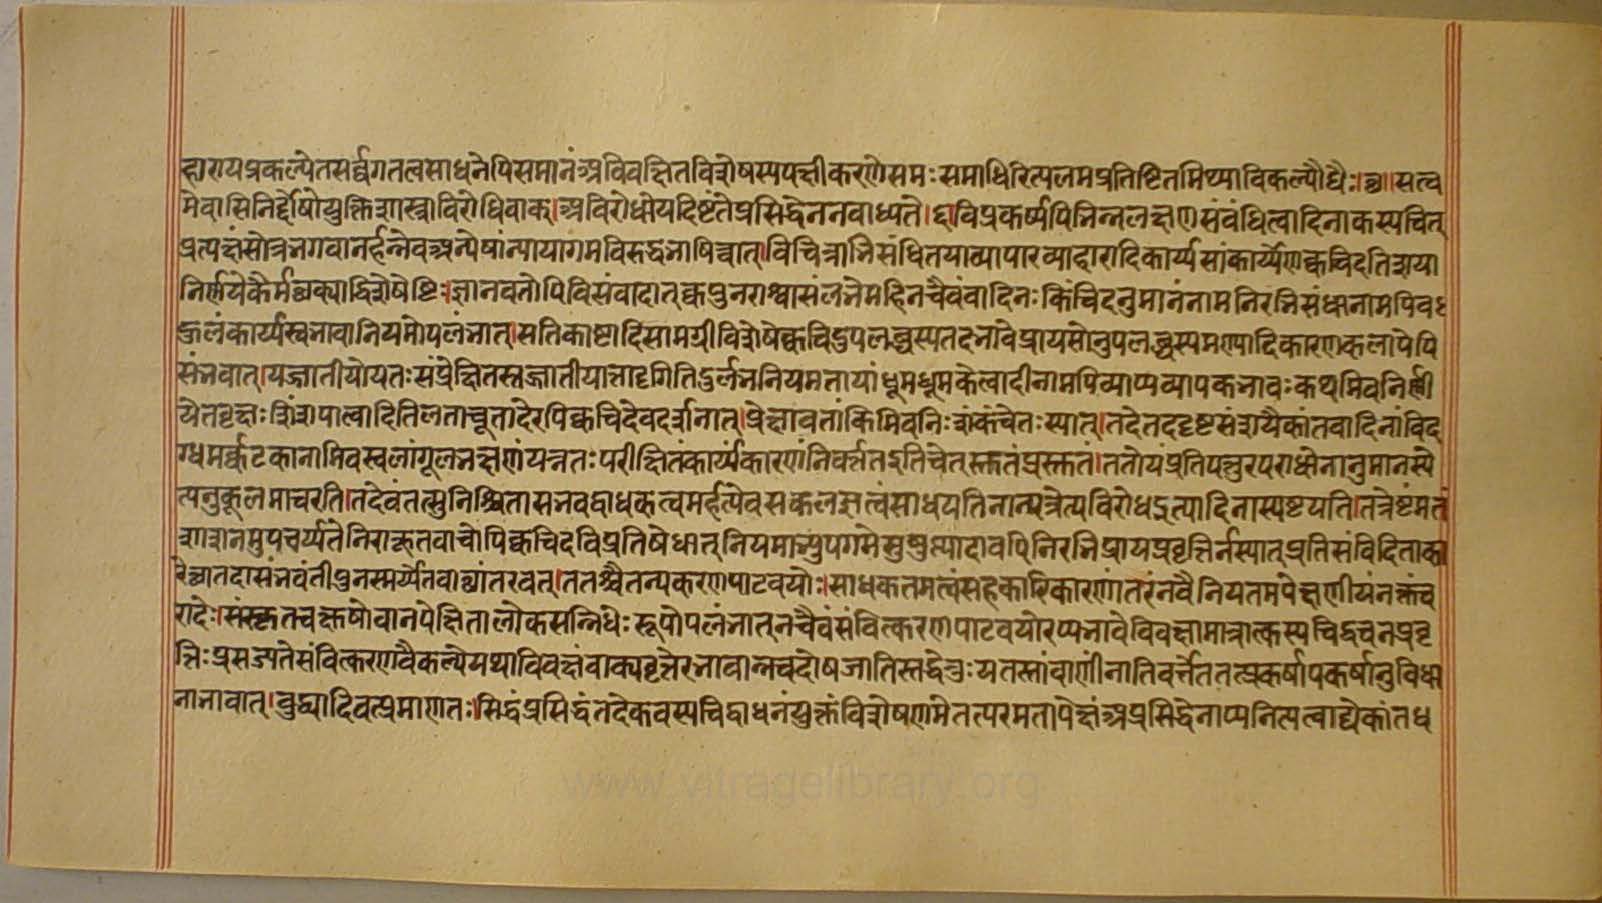 हारायप्रकल्पेतसर्वगतत्वसाधनेपिसमानंअविवक्षितविशेषस्यपक्षीकरणेसमःसमाधिरित्यलमप्रतिष्टितमिथ्याविकल्पौघैः।छ॥सत्व
मेवासिनिर्दोषोयुक्तिशास्त्राविरोधिवाक्।अविरोधोयदिष्टंतेप्रसिद्धेननबाध्यते।६।विप्रकर्ष्यपिभिन्नलक्षणसंबंधित्वादिनाकस्यचित्
प्रत्यक्षंसोत्रभगवानर्हन्नेवअन्येषांन्यायागमविरुद्धभाषित्वात्।विचित्राभिसंधितयाव्यापारव्याहारादिकार्य्यसांकार्य्येणक्वचिदतिशया
निर्णयेकैर्मथक्याद्विशेषेष्टिः।ज्ञानवतोपिविसंवादात्क्वपुनराश्वासंलभेमहिनचैवंवादिनःकिंचिदनुमानंनामनिरभिसंधीनामपिबध
ऊलंकार्य्यस्वभावानियमोपलंभात्।सतिकाष्टादिसामग्रीविशेषेक्वचिदुपलब्धस्यतदभावेप्रायसोनुपलब्धस्यमण्यादिकारणकलापेपि
संभवात्।यज्जातीयोयतःसंप्रेक्षितस्तज्जातीयात्तादृगितिदुर्लभनियमतायांधूमधूमकेत्वादीनामपिव्याप्यव्यापकभावःकथमिवनिर्णी
येतवृक्षःशिंशपात्वादितिलताचूतादेरपिक्वचिदेवदर्शनात्।प्रेक्षावतांकिमिवनिःशंकंचेतःस्यात्।तदेतददृष्टसंशयैकांतवादिनांविद
ग्धमर्क्कटकानामिवस्वलांगूलभक्षणंयत्नतःपरीक्षितंकार्य्यंकारणंनिवर्त्ततइतिचेत्स्तुतंप्रस्तुतं।ततोयंप्रतिपत्तुरपराधोनानुमानस्ये
त्यनुकूलमाचरति।तदेवंतत्सुनिश्चितासंभवद्बाधकत्वमर्हत्येवसकलज्ञत्वंसाधयतिनान्यत्रेत्यविरोधइत्यादिनास्पष्टयति।तत्रेष्टंमतं
शाशनमुपचर्य्यतेनिराकृतवाचोपिक्वचिदविप्रतिषेधात्नियमाभ्युपगमेसुषुप्त्यादावपिनिरभिप्रायप्रवृत्तिर्नस्यात्प्रतिसंविदिताका
रेछातदासंभवंतीपुनस्मर्य्येतवाछांतरवत्।ततश्चैतन्यकरणपाटवयोः।साधकतमत्वंसहकारिकारणांतरंनवैनियतमपेक्षणीयंनक्तंच
रादेः।संस्कृतचक्षुषोवानपेक्षितालोकसन्निधेःरूपोपलंभात्नचैवंसंवित्करणपाटवयोरप्यभावेविवक्षामात्रात्कस्यचिद्वचनप्रवृ
त्तिःप्रसज्यतेसंवित्करणवैकल्येयथाविवक्षंवाक्यवृत्तेरभावान्नचदोषजातिस्तद्धेतुःयतस्तांवाणीनातिवर्त्तेततत्प्रकर्षापकर्षानुविधा
नाभावात्।बुध्यादिवत्प्रमाणतः।सिद्धंप्रसिद्धंतदेकवस्यचिद्बाधनंयुक्तंविशेषणमेतत्परमतापेक्षंअप्रसिद्धेनाप्यनित्यत्वाद्येकांतध
www.vitragelibrary.org